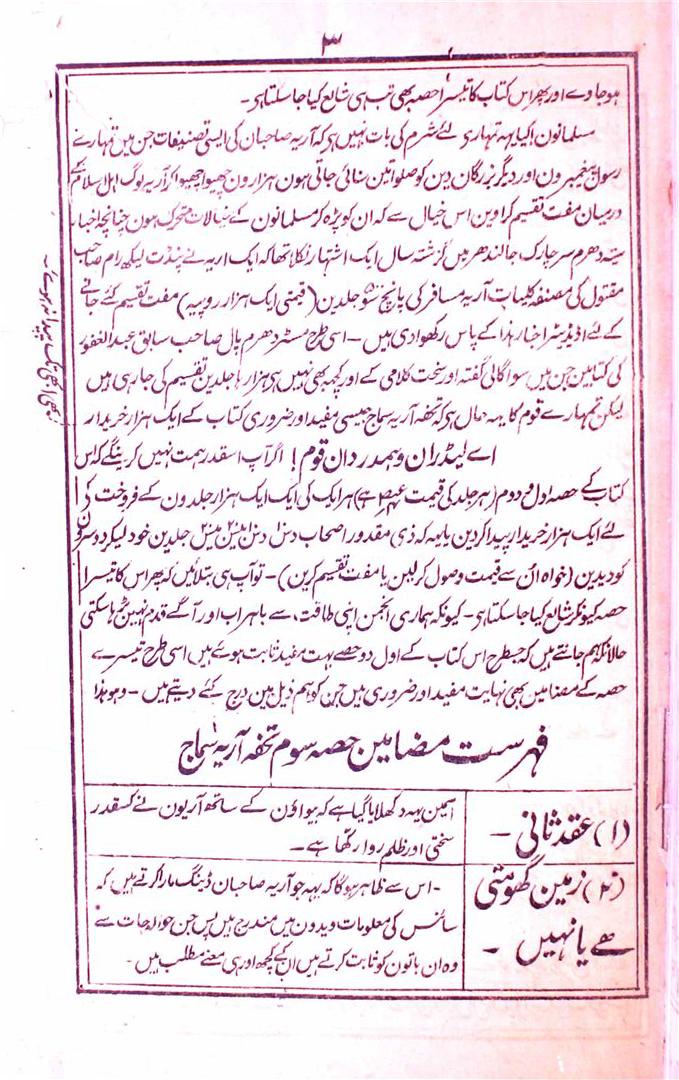 ۳
ہوجاوے اور پھر اس کتاب کا تیسرا حصہ بھی تب ہی شائع کیا جاسکتا ہی۔
مسلمانون! کیا یہہ تمہاری لئے شرم کی بات نہیں ہی کہ آریہ صاحبان کی ایسی تصنیفات جن میں تمہارے
رسول پیغمبرون اور دیگر بزرگان دین کو صلواتین سنائی جاتی ہون ہزارون چھپوا چھپوا کر آریہ لوگ اہل اسلام کے
درمیان مفت تقسیم کراوین اس خیال سے کہ ان کو پڑہ کر مسلمانون کے خیالات متحرک ہون چنانچہ اخبار
ستہ دھرم پرچارک جالندھر میں گزشتہ سال ایک اشتہار نکلا تھا کہ ایک اریہ نے پنڈت لیکھ رام صاحب
مقتول کی مصنفہ کلیات آریہ مسافر کی پانچ سو جلدین (قیمتی ایک ہزار روپیہ) مفت تقسیم کئے جانے
کے لئے اڈیٹر اخبار ہذا کے پاس رکھوادی ہیں۔ اسی طرح مسٹر دھرم پال صاحب سابق عبدالغفور
کی کتابین جن میں سوا گالی گفتہ اور سخت کلامی کے اور کچھ بھی نہیں ہی ہزارہا جلدین تقسیم کی جارہی ہیں
لیکن تمہارے قوم کا یہہ حال ہی کہ تحفہ آریہ سماج جیسی مفید اور ضروری کتاب کے ایک ہزار خریدار
بھی ابھی تک پیدا نہ ہوئے۔
اے لیڈران وہمدردان قوم! اگر آپ اسقدر ہمت نہیں کرینگے کہ اس
کتاب کے حصہ اول و دوم (ہر جلد کی قیمت ہے) ہر ایک کی ایک ایک ہزار جلدون کے فروخت کی
لئے ایک ہزار خریدار پیدا کردین یا یہہ کہ ذی مقدور اصحاب دس دس بیس بیس جلدین خود لیکر دوسرون
کو دیدین (خواہ ان سے قیمت وصول کرلین یا مفت تقسیم کرین)۔ تو آپ ہی بتلائیں کہ پھر اس کا تیسرا
حصہ کیونکر شائع کیا جاسکتا ہی۔ کیونکہ ہماری انجمن اپنی طاقت سے باہر اب اور آگے قدم نہین بڑہا سکتی
حالانکہ ہم جانتے ہیں کہ جسطرح اس کتاب کے اول دو حصے بہت مفید ثابت ہوئے ہیں اسی طرح تیسرے
حصہ کے مضامین بھی نہایت مفید اور ضروری ہیں جن کو ہم ذیل مین درج کئے دیتے ہیں۔ وہو ہذا
فہرست مضامین حصہ سوم تحفہ آریہ سماج
(۱) عقد ثانی۔
اسمین یہہ دکھلایا گیا ہے کہ بیواؤن کے ساتھ آریون نے کسقدر
سختی اور ظلم روا رکھا ہے۔
(۲) زمین گھومتی
ھے یا نہیں۔
۔اس سے ظاہر ہوگا کہ یہہ جو آریہ صاحبان ڈینگ مارا کرتے ہیں کہ
سائنس کی معلومات ویدون میں مندرج ہیں پس جن حوالہ جات سے
وہ ان باتون کو ثابت کرتے ہیں ان کے کچھ اور ہی معنے مطلب ہیں۔